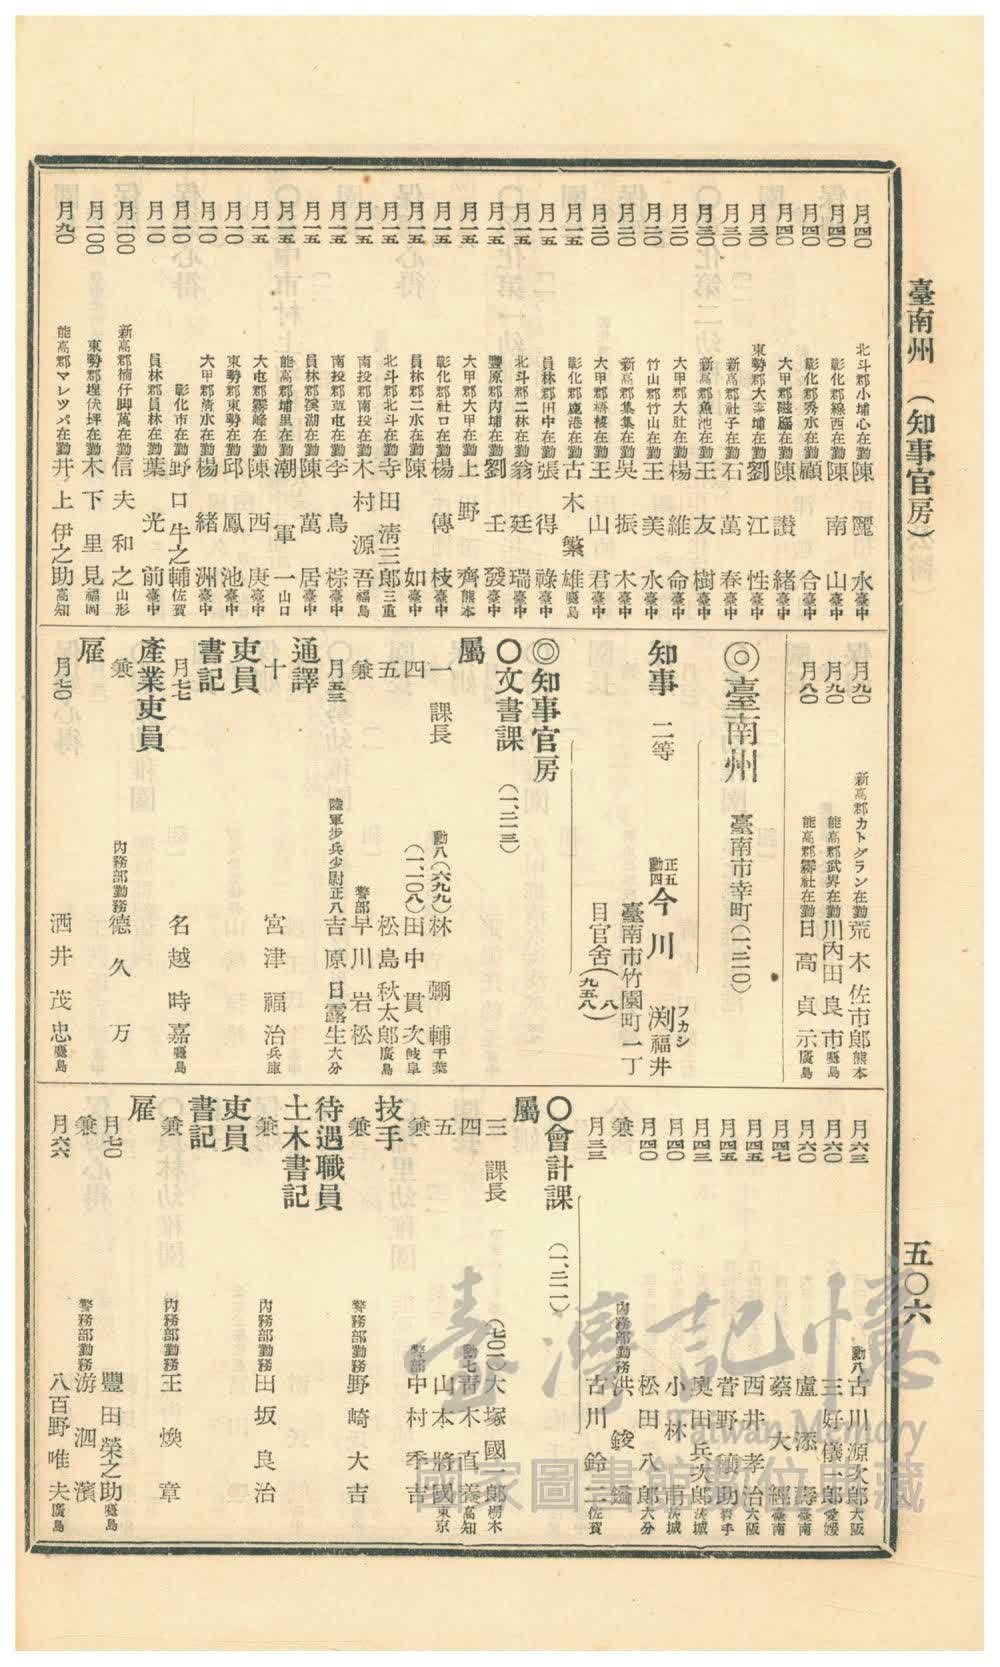 臺南州(知事官房)
五〇六
月四〇 北斗郡小埔心在勤 陳麗水 臺中
月四〇 彰化郡線西在勤 陳南山 臺中
月四〇 彰化郡秀水在勤 顧合 臺中
月四〇 大甲郡磁磘在勤 陳讃緒 臺中
月三〇 東勢郡大茅埔在勤 劉江性 臺中
月三〇 新高郡社子在勤 石萬春 臺中
月三〇 新高郡魚池在勤 王友樹 臺中
月二〇 大甲郡大肚在勤 楊維命 臺中
月二〇 竹山郡竹山在勤 王美水 臺中
月二〇 新高郡集集在勤 吳振木 臺中
月二〇 大甲郡梧棲在勤 王山君 臺中
月一五 彰化郡鹿港在勤 古木繁雄 鹿島
月一五 員林郡田中在勤 張得祿 臺中
月一五 北斗郡二林在勤 翁廷瑞 臺中
月一五 豐原郡內埔在勤 劉壬發 臺中
月一五 大甲郡大甲在勤 上野齊 熊本
月一五 彰化郡社口在勤 楊傳枝 臺中
月一五 員林郡二水在勤 陳如 臺中
月一五 北斗郡北斗在勤 寺田淸三郎 三重
月一五 南投郡南投在勤 木村源吾 福島
月一五 南投郡草屯在勤 李鳥棕 臺中
月一五 員林郡溪湖在勤 陳萬居 臺中
月一五 能高郡埔里在勤 潮軍一 山口
月一五 大屯郡霧峰在勤 陳西庚 臺中
月一〇 東勢郡東勢在勤 邱鳳池 臺中
月一〇 大甲郡淸水在勤 楊緒洲 臺中
月一〇 彰化市在勤 野口牛之輔 佐賀
月一〇 員林郡員林在勤 葉光前 臺中
月一〇〇 新高郡楠仔脚萬在勤 信夫和之 山形
月一〇〇 東勢郡埋伏坪在勤 木下里見 福岡
月九〇 能高郡マレツパ在勤 井上伊之助 高知
月九〇 新高郡カトグラン在勤 荒木佐市郎 熊本
月九〇 能高郡武界在勤 川內田良市 鹿島
月八〇 能高郡霧社在勤 日高貞示 廣島
◎臺南州 臺南市幸町(一、三一〇)
知事 二等 正五勳四 今川淵 フカシ 福井
臺南市竹園町一丁
目官舍(九五八八)
◎知事官房
〇文書課 (一、三一三)
屬
一 課長 勳八(六九九) 林彌輔 千葉
四 (一、一〇八) 田中貫次 岐阜
五 松島秋太郎 廣島
兼 警部 早川岩松
月五三 陸軍步兵少尉正八 吉原日露生 大分
通譯
十 宮津福治 兵庫
吏員
書記
月七七 名越時嘉 鹿島
產業吏員
兼 內務部勤務 德久万
雇
月七〇 酒井茂忠 鹿島
月六三 勳八 古川源次郎 大阪
月六〇 三好儀一郎 愛媛
月六〇 盧添壽 臺南
月四七 蔡大經 臺南
月四五 西井孝治 大阪
月四五 菅野積助 岩手
月四三 奧田兵次郎 茨城
月四〇 小林甫 茨城
月四〇 松田八郎 大分
兼 內務部勤務 洪鋑鐺
月三三 古川鈴三 佐賀
〇會計課 (一、三一一)
屬
三 課長 (七〇一) 大塚國一郎 栃木
四 勳七 青木直養 高知
五 山本將國 東京
兼 警部 中村季吉
技手
兼 警務部勤務 野崎大吉
待遇職員
土木書記
兼 內務部勤務 田坂良治
吏員
書記
兼 內務部勤務 王煥章
雇
月七〇 豐田榮之助 鹿島
兼 警務部勤務 游泗濱
月六六 八百野唯夫 廣島
臺灣記憶
Taiwan Memory
國家圖書館數位典藏